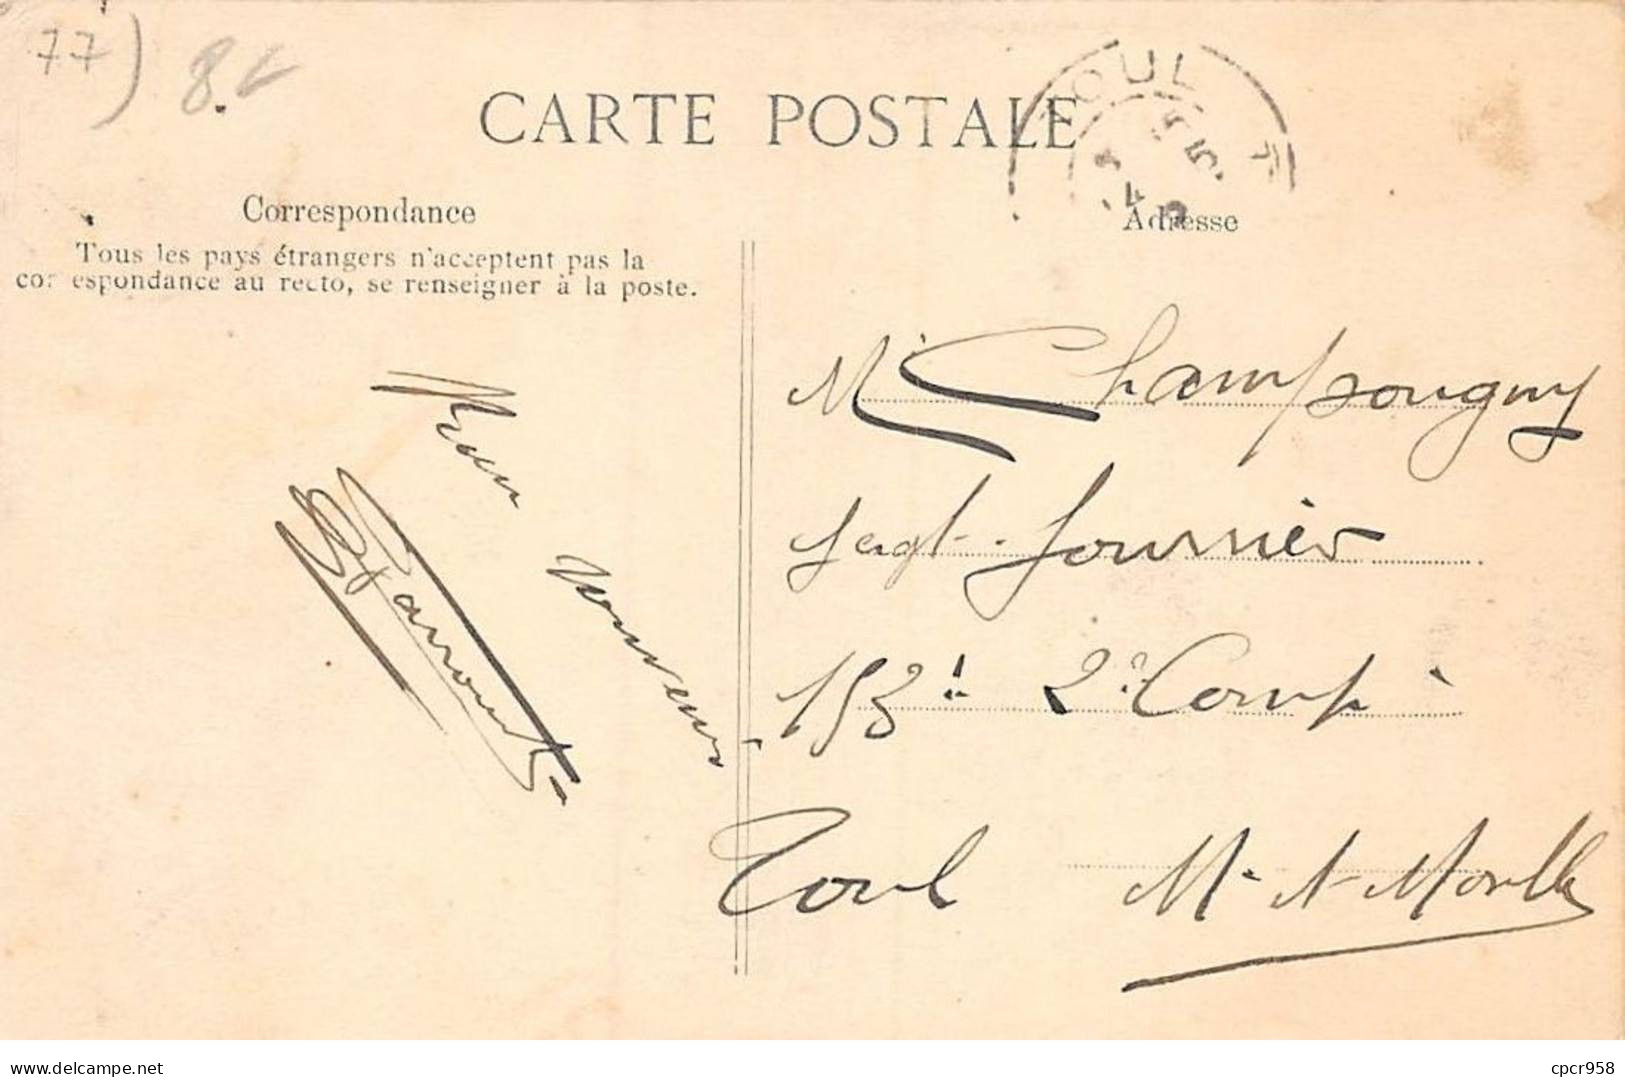 77) 8.
CARTE POSTALE
TOUL
Correspondance
Adresse
Tous les pays étrangers n'acceptent pas la
correspondance au recto, se renseigner à la poste.
Mr Champougny
sergt. fourrier
153e 2e Comp.
Toul M. & Moselle
Mon souvenir
delcampe.net
cpcr958